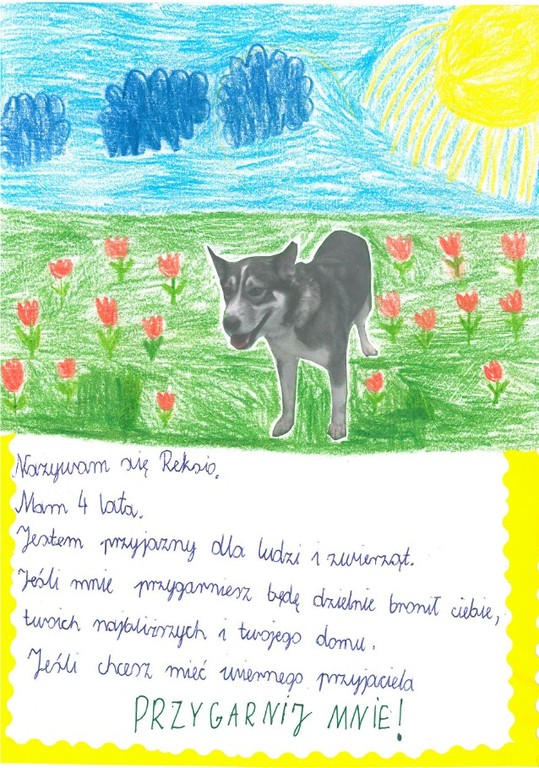 Nazywam się Reksio.
Mam 4 lata.
Jestem przyjazny dla ludzi i zwierząt.
Jeśli mnie przygarniesz będę dzielnie bronił ciebie,
twoich najbliższych i twojego domu.
Jeśli chcesz mieć wiernego przyjaciela
PRZYGARNIJ MNIE!